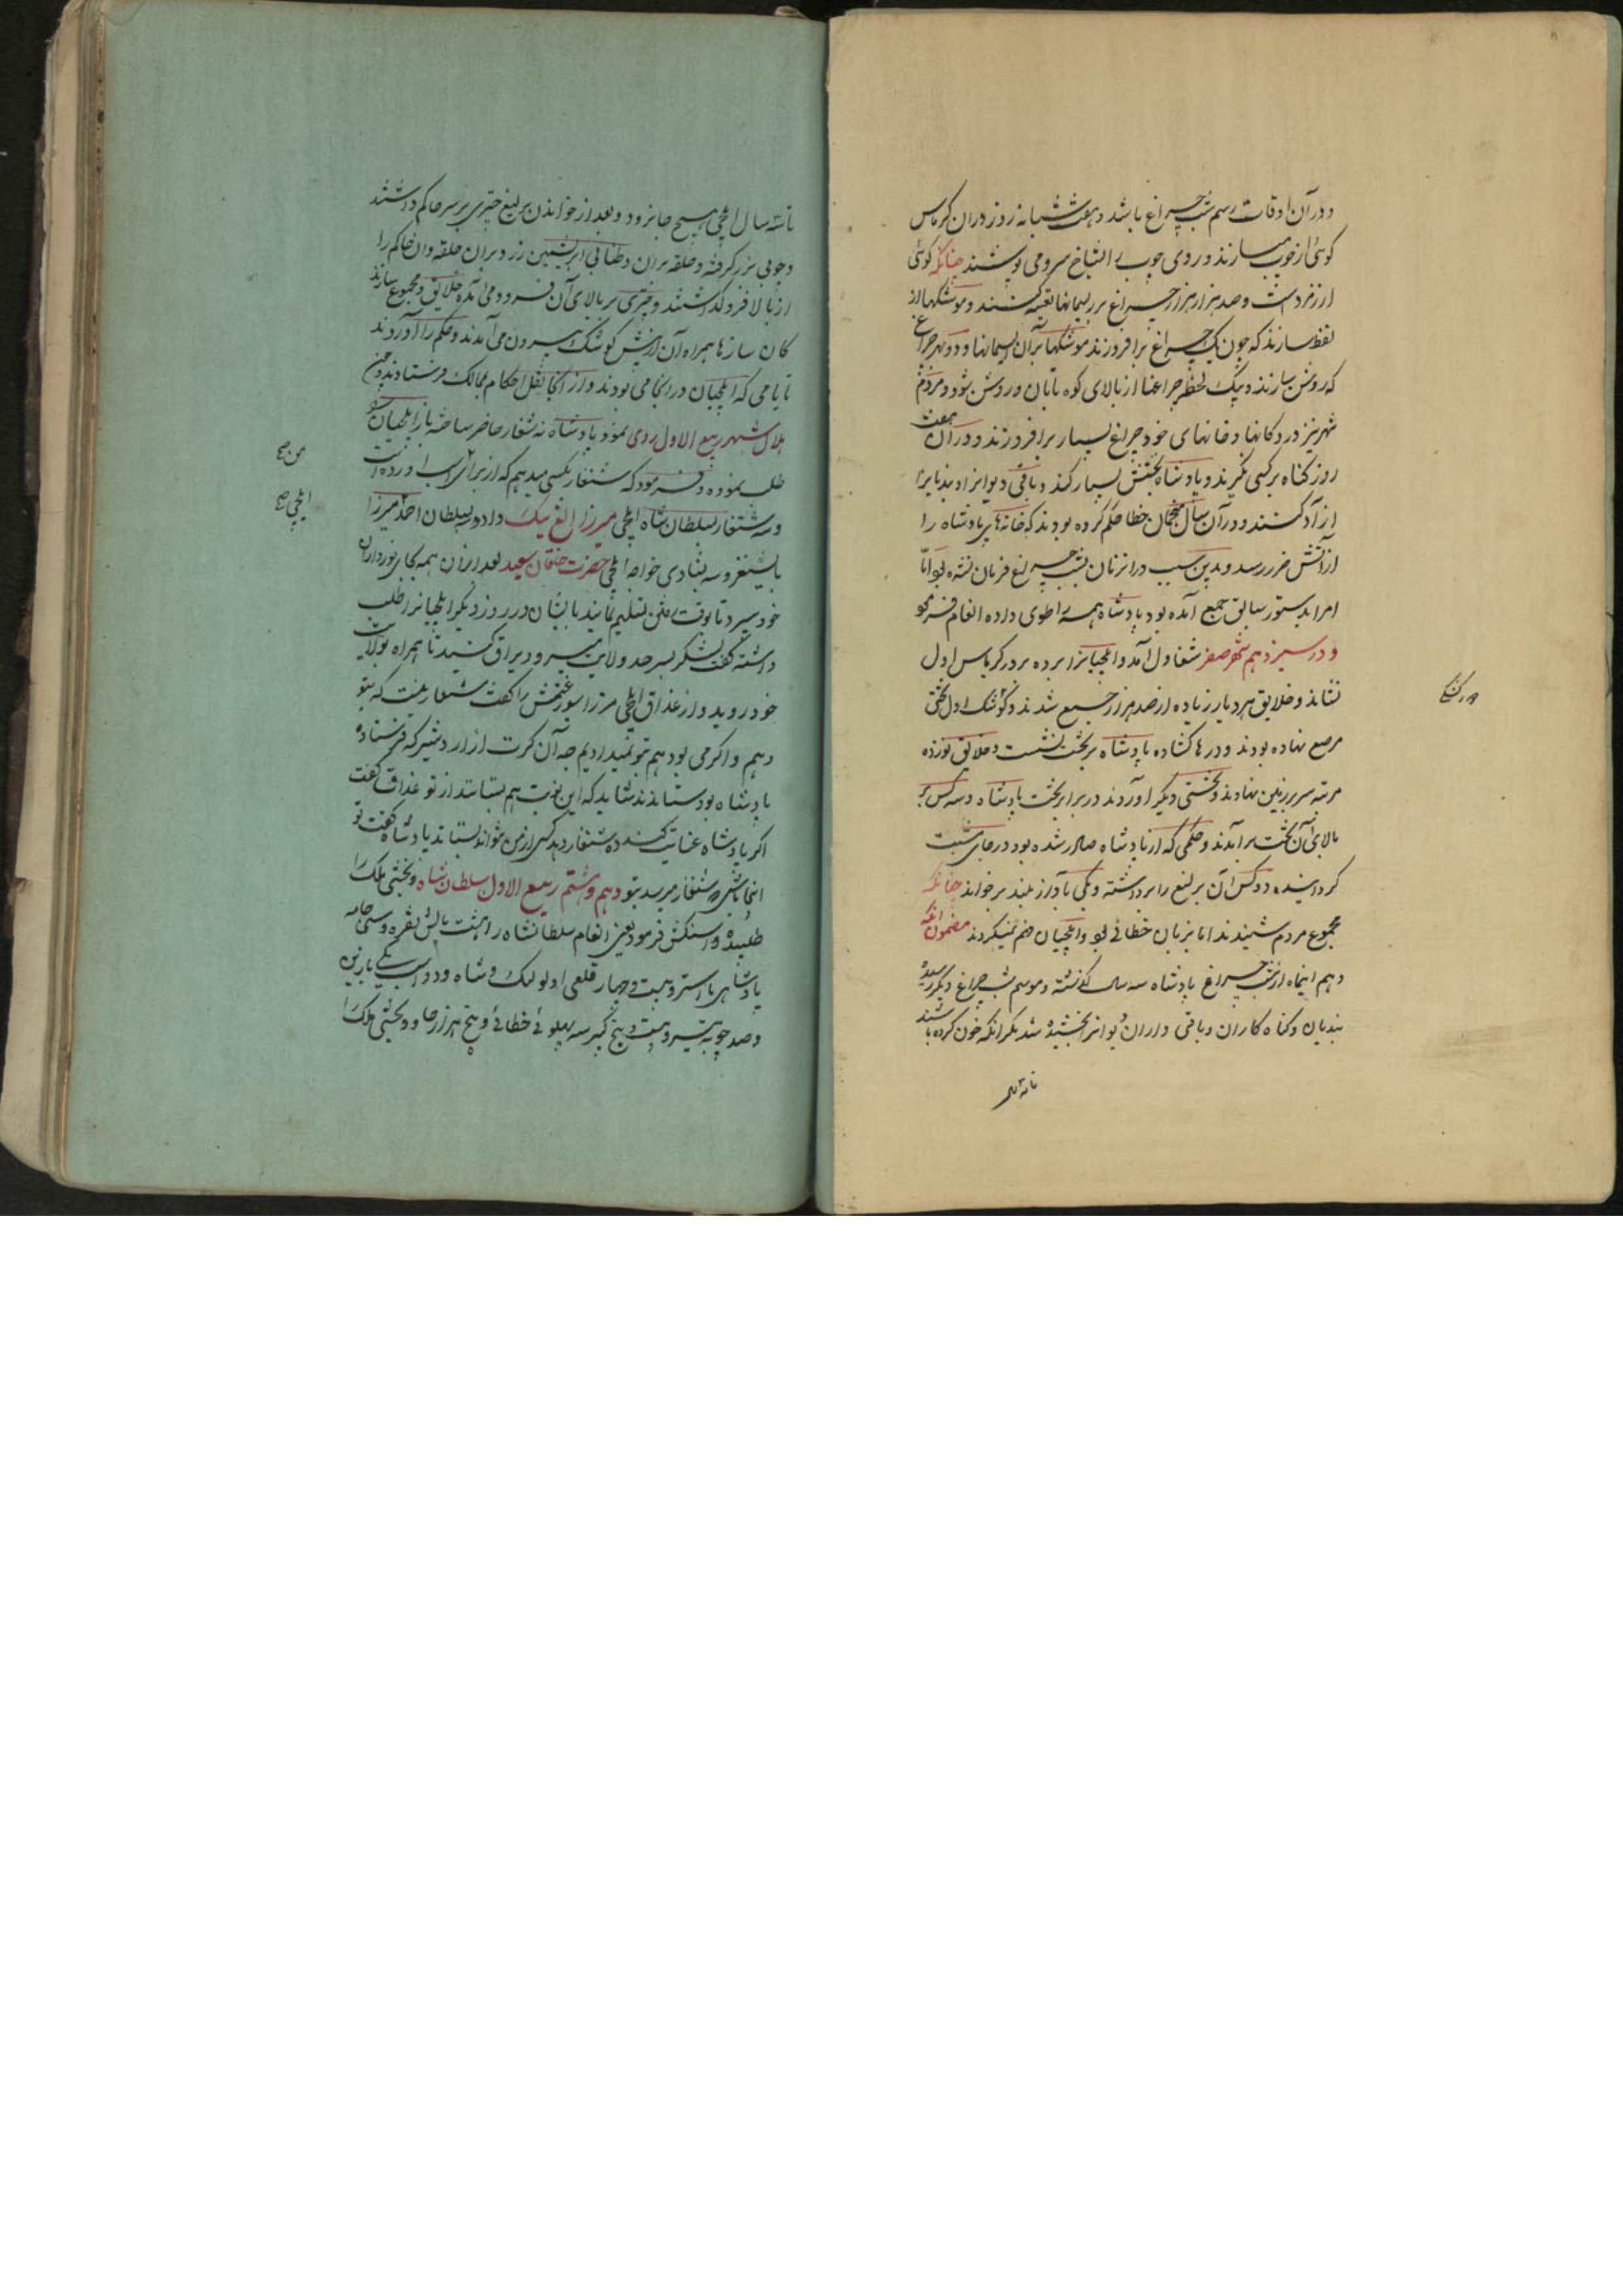 و در آن اوقات رسم شب چراغ باشد و هفت شبانه روز در ان کریاس
کوهی از چوب میسازند و روی چوب را بشاخ سرو می پوشند چنانکه کوئی
از زمرد است و صد هزار هزار چراغ بر ریسمانها تعبیه کنند و موشکها از
نفط سازند که چون یک چراغ برافروزند موشکها بر آن ریسمانها دود و هر چراغ
که روشن سازند و بیک لحظه چراغها از بالای کوه تا پایان روشن شود و مردم
شهر نیز در دکانها و خانهای خود چراغ بسیار برافروزند و در آن هفت
روز کناه بر کسی نگیرند و پادشاه بخشش بسیار کند و باقی دیوانرا و بندیانرا
آزاد کنند و در آن سال منجمان خطا حکم کرده بودند که خانهای پادشاه را
از آتش ضرر رسد و بدین سبب در انزمان بشب چراغ فرمان نشده بود اما
امرا بدستور سابق جمع آمده بود پادشاه همه را طوی داده انعام فرمود
و در سیزدهم شهر صفر شغاول آمد و ایلچیانرا برده بر در کریاس اول
نشاند و خلایق هر دیار زیاده از صد هزار جمع شدند و کوشک اول تختی
مرصع نهاده بودند و درها کشاده پادشاه بر تخت نشست و خلایق نوزده
مرتبه سر بر زمین نهادند و تختی دیگر آوردند در برابر تخت پادشاه و سه کس بر
بالای آن تخت برآمدند و حکمی که از پادشاه صادر شده بود در جای شبت
کردانیده دو کس آن یرلیغ را برداشته و یکی بآواز بلند بر خواند چنانکه
مجموع مردم شنیدند اما بزبان خطائی بود و ایلچیان فهم نمیکردند مضمون آنکه
دهم اینماه از شب چراغ پادشاه سه سال گذشته و موسم شب چراغ دیگر رسیده
بندیان و کناه کاران و باقی داران دیوانرا بخشیده شد مگر آنکه خون کرده باشند
تا سه سال
تا سه سال ایلچی هیچ جا نرود و بعد از خواندن یرلیغ چتری بر سر حاکم داشتند
و چوبی بزر گرفته و حلقه بران و طنابی ابریشمین زرد بران حلقه و ان حاکم را
از بالا فرو گذاشتند و چتری بر بالای آن فرود می آمد و خلایق و مجموع سازند
کان سازها همراه آن از پیش کوشک بیرون می آمدند و حکم را آوردند
تا یامی که ایلچیان در انجا می بودند و از انجا نقل احکام بممالک فرستادند و چون
هلال شهر ربیع الاول روی نمود پادشاه ده شنقار حاضر ساخته باز ایلچیان را
طلب نموده و فرمود که شنقار بکسی میدهم که از برای اسب آورده است
و سه شنقار بسلطان شاه ایلچی میرزا الغ بیک داد و سه بسلطان احمد میرزا
بایسنغر و سه بشادی خواجه ایلچی حضرت خاقان سعید بعد ازان همه بجای نورداران
خود سپرد تا بوقت رفتن تسلیم نمایند بایشان و در روز دیگر ایلچیانرا طلب
داشته گفت لشکر بسرحد ولایت میرود یراق کنید تا همراه بولایت
خود روید و ارغداق ایلچی مرزا سیورغتمش را گفت شنقار نیست که بتو
دهم و اگر می بود هم بتو نمیدادیم چه آن کرت از اردشیر که فرستاده
پادشاه بود ستاندند شاید که این نوبت هم بستانند از تو غداق گفت
اگر پادشاه عنایت کند و شنقار دهد کسی از من نتواند بستاند پادشاه گفت تو
اینجا باش که شنقار میرسد بتو دهم و هشتم ربیع الاول سلطان شاه و بخشی ملک را
طلبیده و اسنکش فرمود یعنی انعام سلطان شاه را هشت بالش نقره و سی جامه
پادشاهی با استر و بیست و چهار قلعی او لوکک و شاه و دو اسب یکی با زین
و صد چوبه تیر و بیست و پنج کبیر سه پهلوئے خطائے و پنج هزار چاو و بخشی ملک را
من صح
ایلچی صح